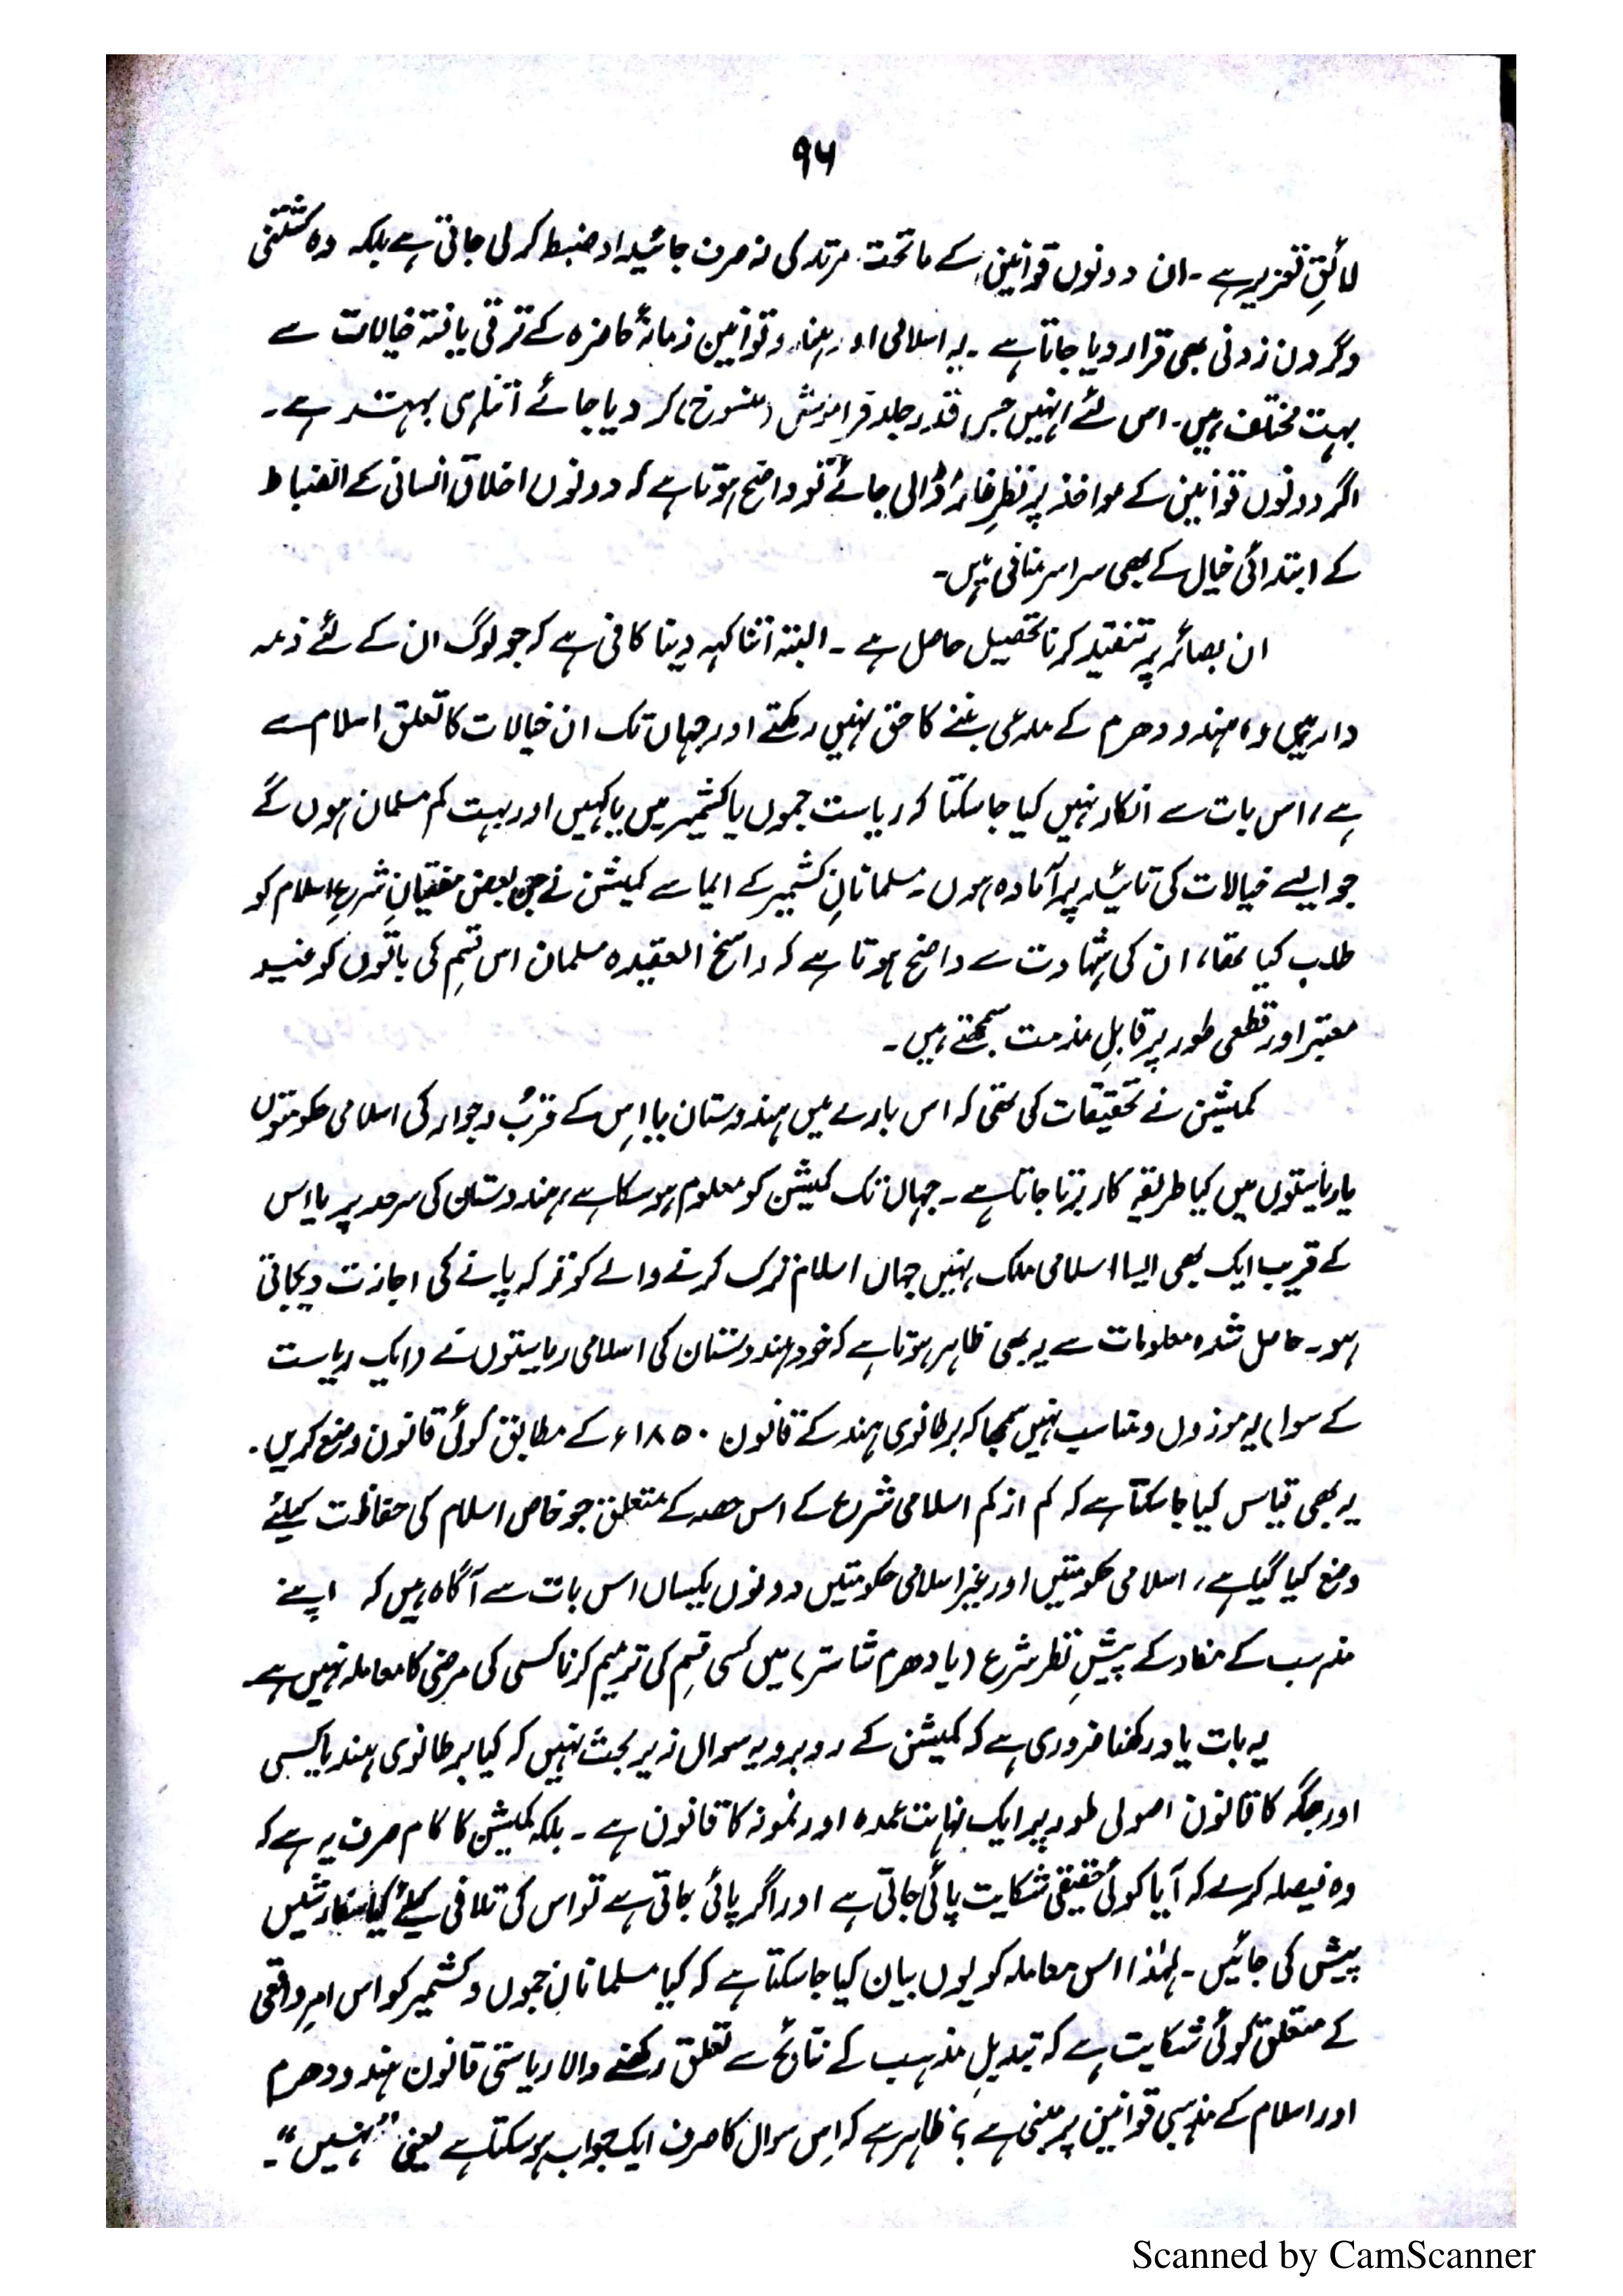 ۹۶
لائقِ تعزیر ہے ۔ ان دونوں قوانین کے ماتحت مرتد کی نہ صرف جائیداد ضبط کر لی جاتی ہے بلکہ وہ کشتنی
و گردن زدنی بھی قرار دیا جاتا ہے ۔ یہ اسلامی اور ہندو قوانین زمانۂ حاضرہ کے ترقی یافتہ خیالات سے
بہت مختلف ہیں ۔ اس لئے انہیں جس قدر جلد فراموش (منسوخ) کر دیا جائے اتنا ہی بہتر ہے ۔
اگر دونوں قوانین کے مواخذ پر نظرِ غائر ڈالی جائے تو واضح ہوتا ہے کہ دونوں اخلاق انسانی کے انضباط
کے ابتدائی خیال کے بھی سراسر منافی ہیں ۔
ان بصائر پر تنقید کرنا تحصیل حاصل ہے ۔ البتہ اتنا کہہ دینا کافی ہے کہ جو لوگ ان کے لئے ذمہ
دار ہیں وہ ہندو دھرم کے مدعی بننے کا حق نہیں رکھتے اور جہاں تک ان خیالات کا تعلق اسلام سے
ہے، اس بات سے انکار نہیں کیا جا سکتا کہ ریاست جموں یا کشمیر میں یا کہیں اور بہت کم مسلمان ہوں گے
جو ایسے خیالات کی تائید پر آمادہ ہوں ۔ مسلمانانِ کشمیر کے ایما سے کمیشن نے جن بعض مفتیانِ شرعِ اسلام کو
طلب کیا تھا، ان کی شہادت سے واضح ہوتا ہے کہ راسخ العقیدہ مسلمان اس قسم کی باتوں کو غیر
معتبر اور قطعی طور پر قابلِ مذمت سمجھتے ہیں ۔
کمیشن نے تحقیقات کی تھی کہ اس بارے میں ہندوستان یا اس کے قرب و جوار کی اسلامی حکومتوں
یا ریاستوں میں کیا طریقہ کار برتا جاتا ہے ۔ جہاں تک کمیشن کو معلوم ہو سکا ہے، ہندوستان کی سرحد پر یا اس
کے قریب ایک بھی ایسا اسلامی ملک نہیں جہاں اسلام ترک کرنے والے کو ترکہ پانے کی اجازت دیجاتی
ہو ۔ حاصل شدہ معلومات سے یہ بھی ظاہر ہوتا ہے کہ خود ہندوستان کی اسلامی ریاستوں نے (ایک ریاست
کے سوا) یہ موزوں و مناسب نہیں سمجھا کہ برطانوی ہند کے قانون ۱۸۵۰ء کے مطابق کوئی قانون وضع کریں ۔
یہ بھی قیاس کیا جا سکتا ہے کہ کم از کم اسلامی شرع کے اس حصہ کے متعلق جو خاص اسلام کی حفاظت کیلئے
وضع کیا گیا ہے، اسلامی حکومتیں اور غیر اسلامی حکومتیں دونوں یکساں اس بات سے آگاہ ہیں کہ اپنے
مذہب کے مفاد کے پیشِ نظر شرع (یا دھرم شاستر) میں کسی قسم کی ترمیم کرنا کسی کی مرضی کا معاملہ نہیں ہے ۔
یہ بات یاد رکھنا ضروری ہے کہ کمیشن کے روبرو یہ سوال زیر بحث نہیں کہ کیا برطانوی ہند یا کسی
اور جگہ کا قانون اصولی طور پر ایک نہایت عمدہ اور نمونہ کا قانون ہے ۔ بلکہ کمیشن کا کام صرف یہ ہے کہ
وہ فیصلہ کرے کہ آیا کوئی حقیقی شکایت پائی جاتی ہے اور اگر پائی جاتی ہے تو اس کی تلافی کیلئے کیا سفارشیں
پیش کی جائیں ۔ لہٰذا اس معاملہ کو یوں بیان کیا جا سکتا ہے کہ کیا مسلمانانِ جموں و کشمیر کو اس امرِ واقعی
کے متعلق کوئی شکایت ہے کہ تبدیلِ مذہب کے نتائج سے تعلق رکھنے والا ریاستی قانون ہندو دھرم
اور اسلام کے مذہبی قوانین پر مبنی ہے ؟ ظاہر ہے کہ اِس سوال کا صرف ایک جواب ہو سکتا ہے یعنی "نہیں" ۔
Scanned by CamScanner